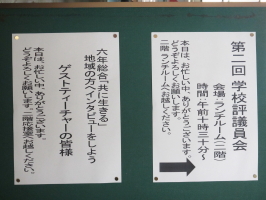 第二回 学校評議員会
会場・ランチルーム(二階)
時間・午前十時三十分~
本日は、お忙しい中、ありがとうございます。
どうぞよろしくお願いします。
二階ランチルームへお越しください。
六年総合「共に生きる」
地域の方へインタビューをしよう
ゲストティーチャーの皆様
本日は、お忙しい中、ありがとうございます。
どうぞよろしくお願いします。二階応接室へお越しください。